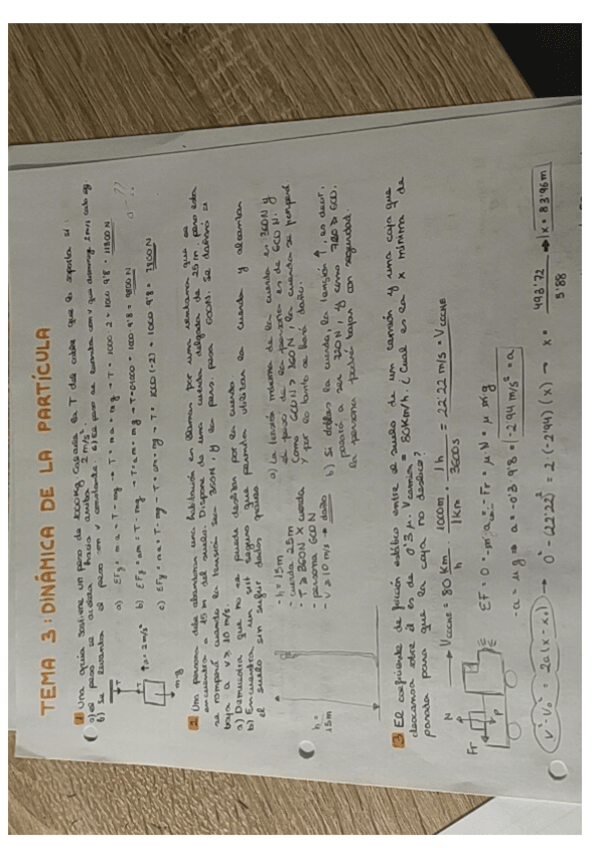 TEMA 3: DINÁMICA DE LA PARTÍCULA
1 Una grúa sostiene un peso de 1000kg Calcula la T del cable que lo soporta si:
a) el peso se acelera hacia arriba 2 m/s².
b) Se levanta el peso con v constante. c) El peso se levanta con v que disminuye 2m/s cada sg.
a) ΣFy = m·a = T - mg → T = ma + mg → T = 1000·2 + 1000·9'8 = 11800N
b) ΣFy = am = T - mg → T = am + mg → T = 0·1000 + 1000·9'8 = 9800N
c) ΣFy = ma = T - mg → T = am + mg → T = 1000(-2) + 1000·9'8 = 7800N
T
a = 2m/s²
mg
2 Una persona debe abandonar una habitación en llamas por una ventana que se
encuentra a 15 m del suelo. Dispone de una cuerda delgada de 25m. pero esta
se romperá cuando la tensión sea 360N y la pers. pesa 600N. Se dañará si
baja a v ≥ 10 m/s.
a) Demuestra que no se puede deslizar por la cuerda
b) Encuentra un sist seguro que permita utilizar la cuerda y alcanzar
el suelo sin sufrir daños
- h = 15m
- cuerda 25m
- T ≥ 360N X cuerda
- persona 600N
- v ≥ 10 m/s → daño
h = 15m
a) La tensión máxima de la cuerda es 360N y
el peso de la persona es de 600N.
Como 600N > 360N, la cuerda se romperá
y por lo tanto se hará daño.
b) Si doblas la cuerda, la tensión, es decir,
pasará a ser 720N, y como 720 > 600,
la persona podrá bajar con seguridad
3 El coeficiente de fricción estático entre el suelo de un camión y una caja que
descansa sobre él es de 0'3 μ. V camión = 80Km/h. ¿Cual es la x mínima de
parada para que la caja no deslice?
→ V COCHE = 80 Km/h · 1000m/1Km · 1h/3600s = 22'22 m/s = V COCHE
N
Fr
P
ΣF = 0 = -m·a = -Fr = μN = μ mg
-a = μg → a = -0'3·9'8 = -2'94 m/s² = a
v² - v₀² = 2a(x - x₀) → 0² - (22'22)² = 2(-2'94)(x) → x = 493'72/5'88 → x = 83'96m